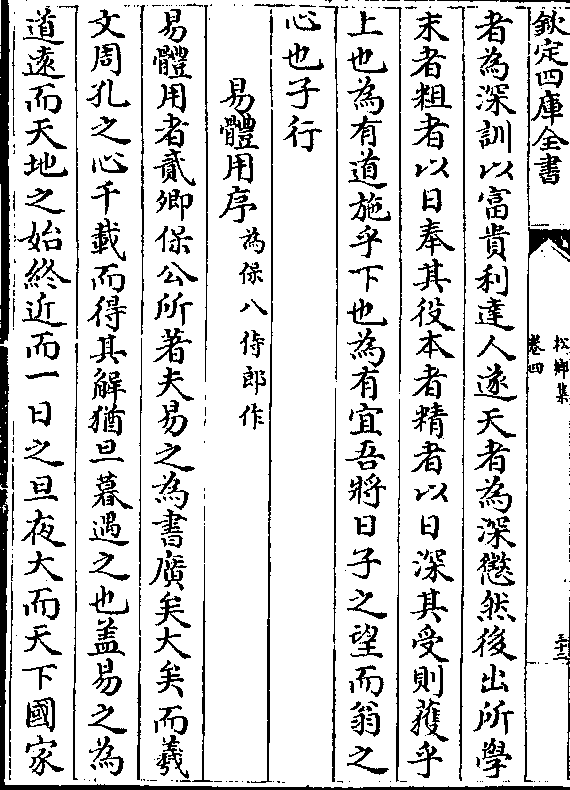 欽定四庫全書
松鄉集
卷四
者為深訓以富貴利達人遂天者為深懲然後出所學
末者粗者以日奉其役本者精者以日深其受則獲乎
上也為有道施乎下也為有宜吾將日子之望而翁之
心也子行
易體用序為保八侍郎作
易體用者貳卿保公所著夫易之為書廣矣大矣而羲
文周孔之心千載而得其解猶旦暮遇之也盖易之為
道遠而天地之始終近而一日之旦夜大而天下國家